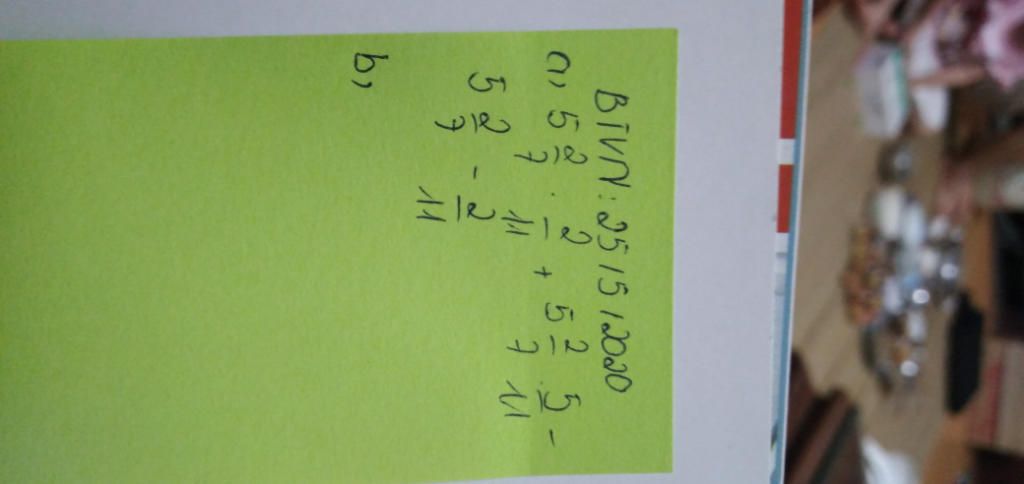 BTVN: 25/5/2020
a, 5 2/7 . 2/11 + 5 2/7 . 5/11 -
5 2/7 - 2/11
b,